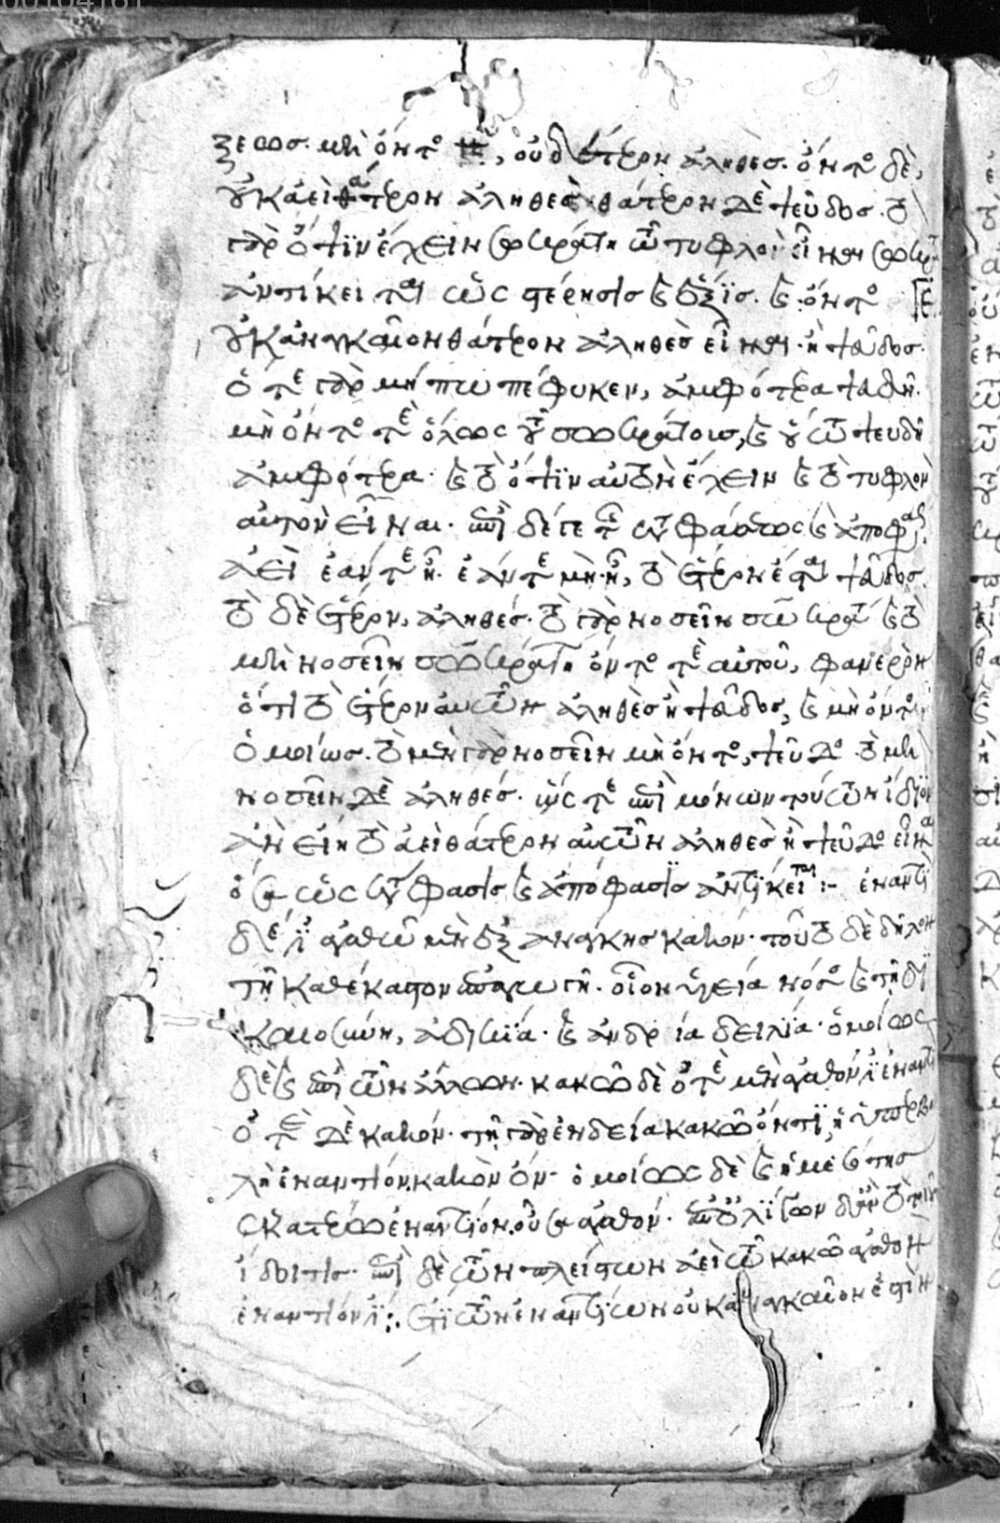 ξεως. μὴ ὄντος, οὐδέτερον ἀληθές. ὄντος δὲ,
οὐκ ἀεὶ θάτερον ἀληθὲς θάτερον δὲ ψεῦδος. τὸ
γὰρ ὄψιν ἔχειν σωκράτη τῶ τυφλὸν εἶναι σωκράτη
ἀντίκειται ὡς στέρησις καὶ ἕξις. καὶ ὄντος
οὐκ ἀναγκαῖον θάτερον ἀληθὲς εἶναι ἢ ψεῦδος.
ὅτε γὰρ μήπω πέφυκεν, ἀμφότερα ψευδῆ.
μὴ ὄντος τε ὅλως τοῦ σωκράτους, καὶ οὕτω ψευδῆ
ἀμφότερα. καὶ τὸ ὄψιν αὐτὸν ἔχειν καὶ τὸ τυφλὸν
αὐτὸν εἶναι. ἐπὶ δέ γε τῆς καταφάσεως καὶ ἀποφάσεως
ἀεὶ ἐάν τε ἦ ἐάν τε μὴ ἦ, τὸ ἕτερον ἔσται ψεῦδος.
τὸ δὲ ἕτερον, ἀληθές. τὸ γὰρ νοσεῖν σωκράτη καὶ τὸ
μὴ νοσεῖν σωκράτη ὄντος τε αὐτοῦ, φανερὸν
ὅτι τὸ ἕτερον αὐτῶν ἀληθὲς ἢ ψεῦδος, καὶ μὴ ὄντος
ὁμοίως. τὸ μὲν γὰρ νοσεῖν μὴ ὄντος, ψεῦδος. τὸ μὴ
νοσεῖν δὲ ἀληθές. ὥστε ἐπὶ μόνων τούτων ἴδιον
ἂν εἴη τὸ ἀεὶ θάτερον αὐτῶν ἀληθὲς ἢ ψεῦδος εἶναι
ὅσα ὡς κατάφασις καὶ ἀπόφασις ἀντίκειται :- ἐναντίον
δέ ἐστι ἀγαθῶ μὲν ἐξ ἀνάγκης κακόν. τοῦτο δὲ δῆλον
τῆ καθέκαστον ἐπαγωγῆ. οἷον ὑγεία νόσος καὶ τῆ δι
καιοσύνη, ἀδικία. καὶ ἀνδρία δειλία. ὁμοίως
δὲ καὶ ἐπὶ τῶν ἄλλων. κακῶ δὲ ὁτὲ μὲν ἀγαθόν ἐστι ἐναντίον
ὁτὲ δὲ κακόν. τῆ γὰρ ἐνδεία κακῶ ὄντι, ἡ ὑπερβο
λὴ ἐναντίον κακὸν ὄν. ὁμοίως δὲ καὶ ἡ μεσότης
ἑκατέρω ἐναντίον, οὖσα ἀγαθόν. ἐπ' ὀλίγων δ' ἂν τὸ τοιοῦτον
ἴδοι τις. ἐπὶ δὲ τῶν πλείστων ἀεὶ τῶ κακῶ ἀγαθὸν
ἐναντίον ἐστι :. ἔτι τῶν ἐναντίων οὐκ ἀναγκαῖον ἐστὶν